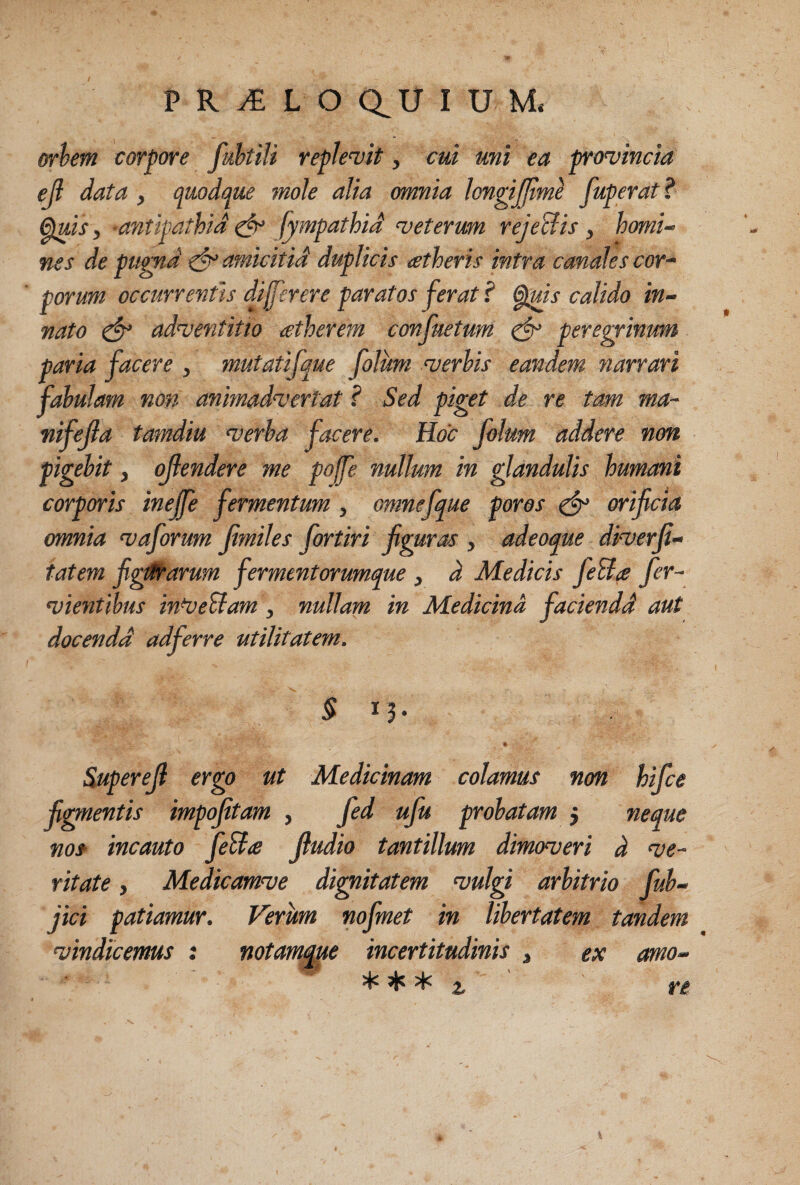 PRÆLOQUIUM.
orbem corpore ſubtili replevit, cui uni ea provincia
eſt data, quodque mole alia omnia longiſſimè ſuperat?
Quis, antipathiâ & ſympathiâ veterum rejectis, homi-
nes de pugnâ & amicitiâ duplicis ætheris intra canales cor-
porum occurrentis diſſerere paratos ferat? Quis calido in-
nato & adventitio ætherem conſuetum & peregrinum
paria facere, mutatiſque ſolùm verbis eandem narrari
fabulam non animadvertat? Sed piget de re tam ma-
nifeſta tamdiu verba facere. Hoc ſolum addere non
pigebit, oſtendere me poſſe nullum in glandulis humani
corporis ineſſe fermentum, omneſque poros & orificia
omnia vaſorum ſimiles ſortiri figuras, adeoque diverſi-
tatem figurarum fermentorumque, à Medicis ſectæ ſer-
vientibus invectam, nullam in Medicinâ faciendâ aut
docendâ adferre utilitatem.
§ 13.
Supereſt ergo ut Medicinam colamus non hiſce
figmentis impoſitam, ſed uſu probatam; neque
nos incauto ſectæ ſtudio tantillum dimoveri à ve-
ritate, Medicamve dignitatem vulgi arbitrio ſub-
jici patiamur. Verùm noſmet in libertatem tandem
vindicemus: notamque incertitudinis, ex amo-
*** 2 re